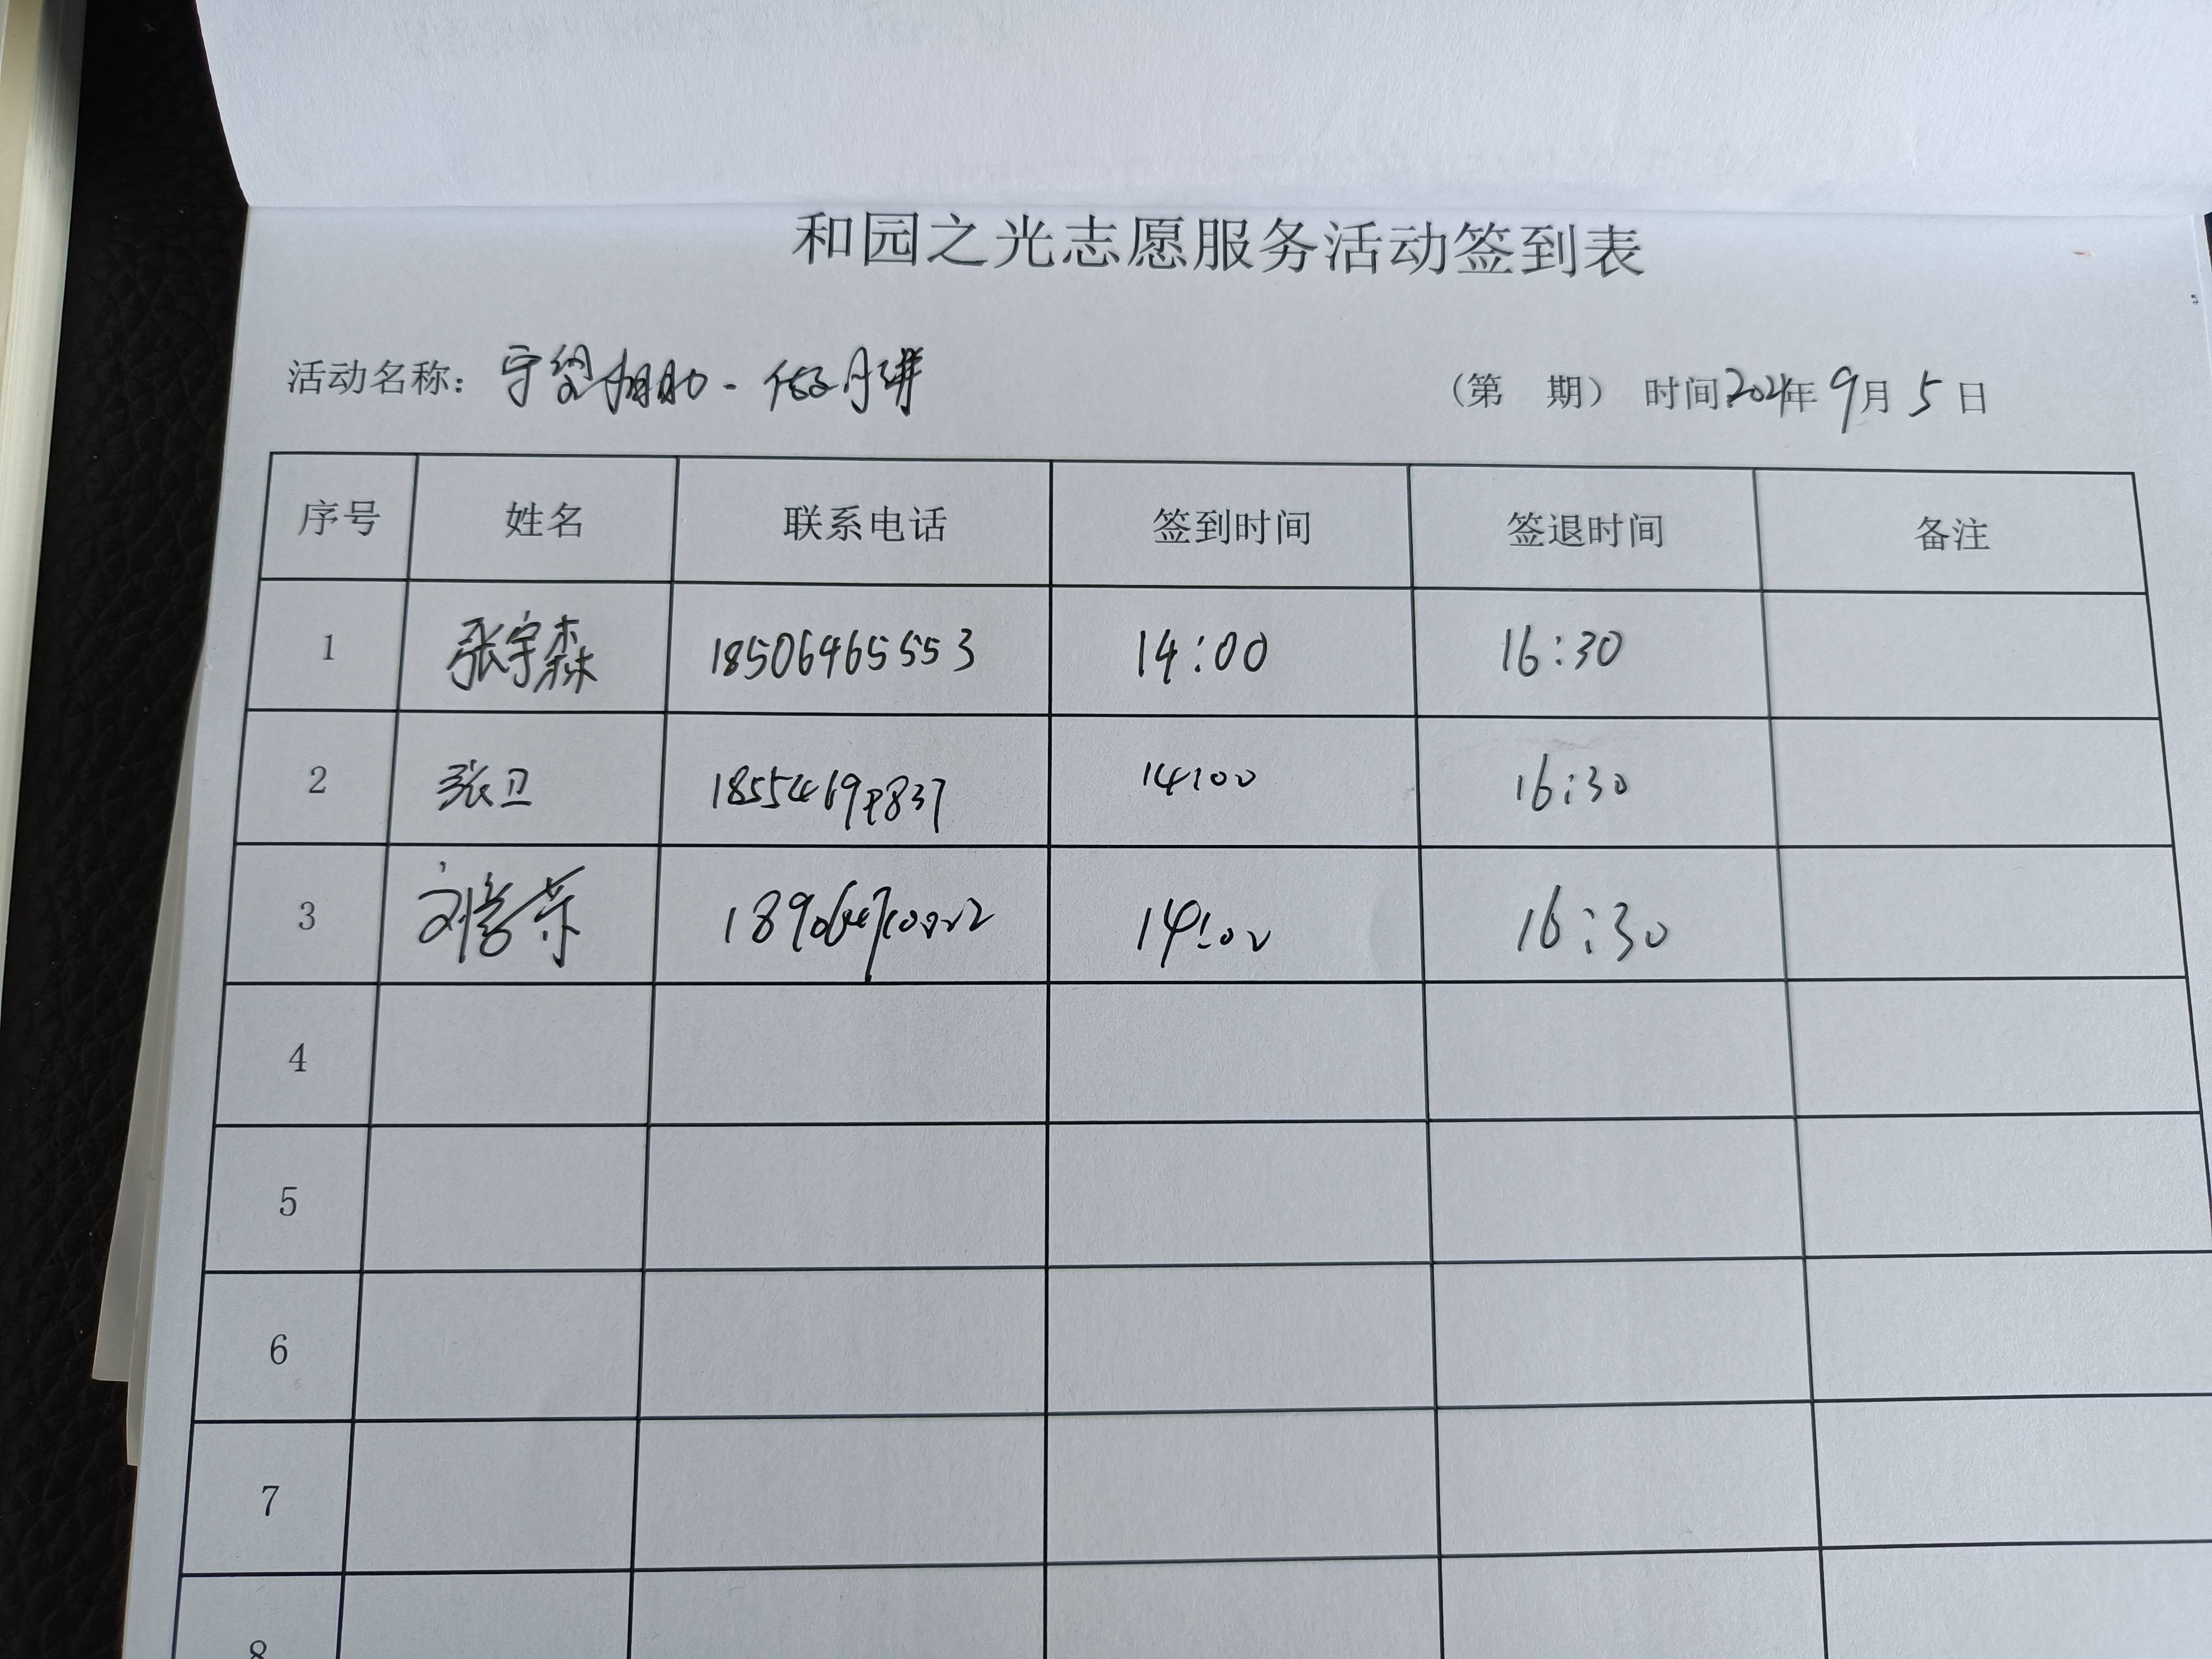 和园之光志愿服务活动签到表
活动名称：守望相助-做月饼 （第 期） 时间：2024年9月5日
序号 姓名 联系电话 签到时间 签退时间 备注
1 张宇森 18506465553 14:00 16:30
2 张卫 14:00 16:30
3 14:00 16:30
4
5
6
7
8